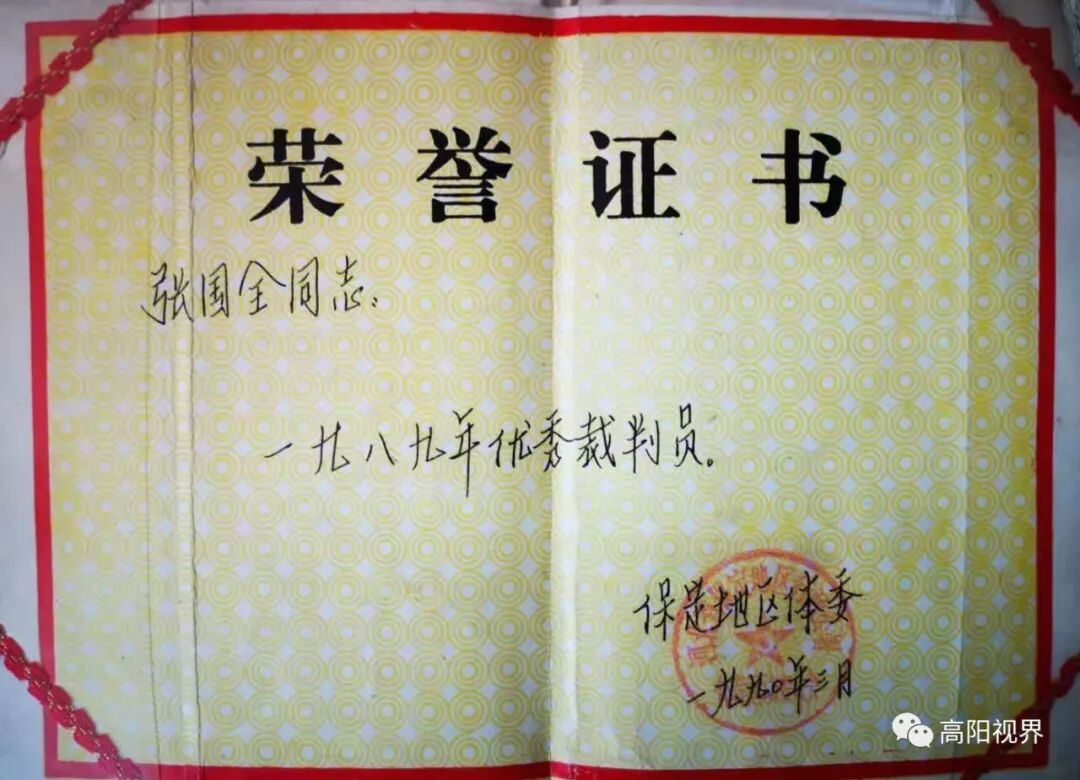 荣誉证书
张国全同志：
一九八九年优秀裁判员。
保定地区体委
一九九〇年三月
高阳视界